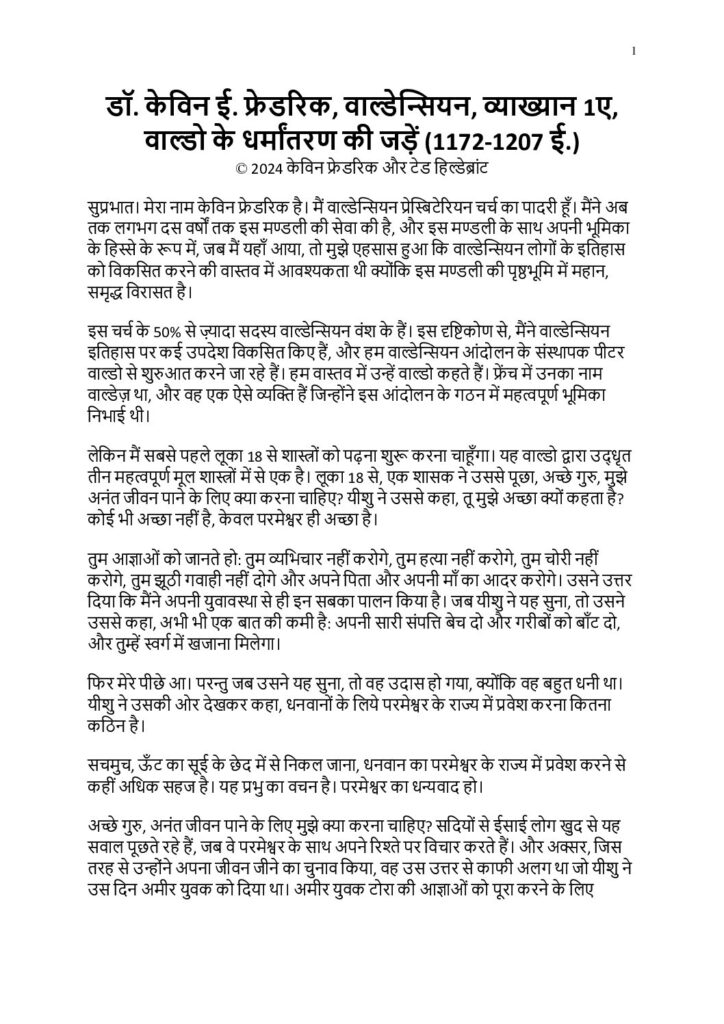 1
डॉ. केविन ई. फ्रेडरिक, वाल्डेन्सियन, व्याख्यान 1ए,
वाल्डो के धर्मांतरण की जड़ें (1172-1207 ई.)
© 2024 केविन फ्रेडरिक और टेड हिल्डेब्रांट
सुप्रभात। मेरा नाम केविन फ्रेडरिक है। मैं वाल्डेन्सियन प्रेस्बिटेरियन चर्च का पादरी हूँ। मैंने अब
तक लगभग दस वर्षों तक इस मण्डली की सेवा की है, और इस मण्डली के साथ अपनी भूमिका
के हिस्से के रूप में, जब मैं यहाँ आया, तो मुझे एहसास हुआ कि वाल्डेन्सियन लोगों के इतिहास
को विकसित करने की वास्तव में आवश्यकता थी क्योंकि इस मण्डली की पृष्ठभूमि में महान,
समृद्ध विरासत है।
इस चर्च के 50% से ज़्यादा सदस्य वाल्डेन्सियन वंश के हैं। इस दृष्टिकोण से, मैंने वाल्डेन्सियन
इतिहास पर कई उपदेश विकसित किए हैं, और हम वाल्डेन्सियन आंदोलन के संस्थापक पीटर
वाल्डो से शुरुआत करने जा रहे हैं। हम वास्तव में उन्हें वाल्डो कहते हैं। फ्रेंच में उनका नाम
वाल्डेज़ था, और वह एक ऐसे व्यक्ति हैं जिन्होंने इस आंदोलन के गठन में महत्वपूर्ण भूमिका
निभाई थी।
लेकिन मैं सबसे पहले लूका 18 से शास्त्रों को पढ़ना शुरू करना चाहूँगा। यह वाल्डो द्वारा उद्धृत
तीन महत्वपूर्ण मूल शास्त्रों में से एक है। लूका 18 से, एक शासक ने उससे पूछा, अच्छे गुरु, मुझे
अनंत जीवन पाने के लिए क्या करना चाहिए? यीशु ने उससे कहा, तू मुझे अच्छा क्यों कहता है?
कोई भी अच्छा नहीं है, केवल परमेश्वर ही अच्छा है।
तुम आज्ञाओं को जानते हो: तुम व्यभिचार नहीं करोगे, तुम हत्या नहीं करोगे, तुम चोरी नहीं
करोगे, तुम झूठी गवाही नहीं दोगे और अपने पिता और अपनी माँ का आदर करोगे। उसने उत्तर
दिया कि मैंने अपनी युवावस्था से ही इन सबका पालन किया है। जब यीशु ने यह सुना, तो उसने
उससे कहा, अभी भी एक बात की कमी है: अपनी सारी संपत्ति बेच दो और गरीबों को बाँट दो,
और तुम्हें स्वर्ग में खजाना मिलेगा।
फिर मेरे पीछे आ। परन्तु जब उसने यह सुना, तो वह उदास हो गया, क्योंकि वह बहुत धनी था।
यीशु ने उसकी ओर देखकर कहा, धनवानों के लिये परमेश्वर के राज्य में प्रवेश करना कितना
कठिन है।
सचमुच, ऊँट का सूई के छेद में से निकल जाना, धनवान का परमेश्वर के राज्य में प्रवेश करने से
कहीं अधिक सहज है। यह प्रभु का वचन है। परमेश्वर का धन्यवाद हो।
अच्छे गुरु, अनंत जीवन पाने के लिए मुझे क्या करना चाहिए? सदियों से ईसाई लोग खुद से यह
सवाल पूछते रहे हैं, जब वे परमेश्वर के साथ अपने रिश्ते पर विचार करते हैं। और अक्सर, जिस
तरह से उन्होंने अपना जीवन जीने का चुनाव किया, वह उस उत्तर से काफी अलग था जो यीशु ने
उस दिन अमीर युवक को दिया था। अमीर युवक टोरा की आज्ञाओं को पूरा करने के लिए